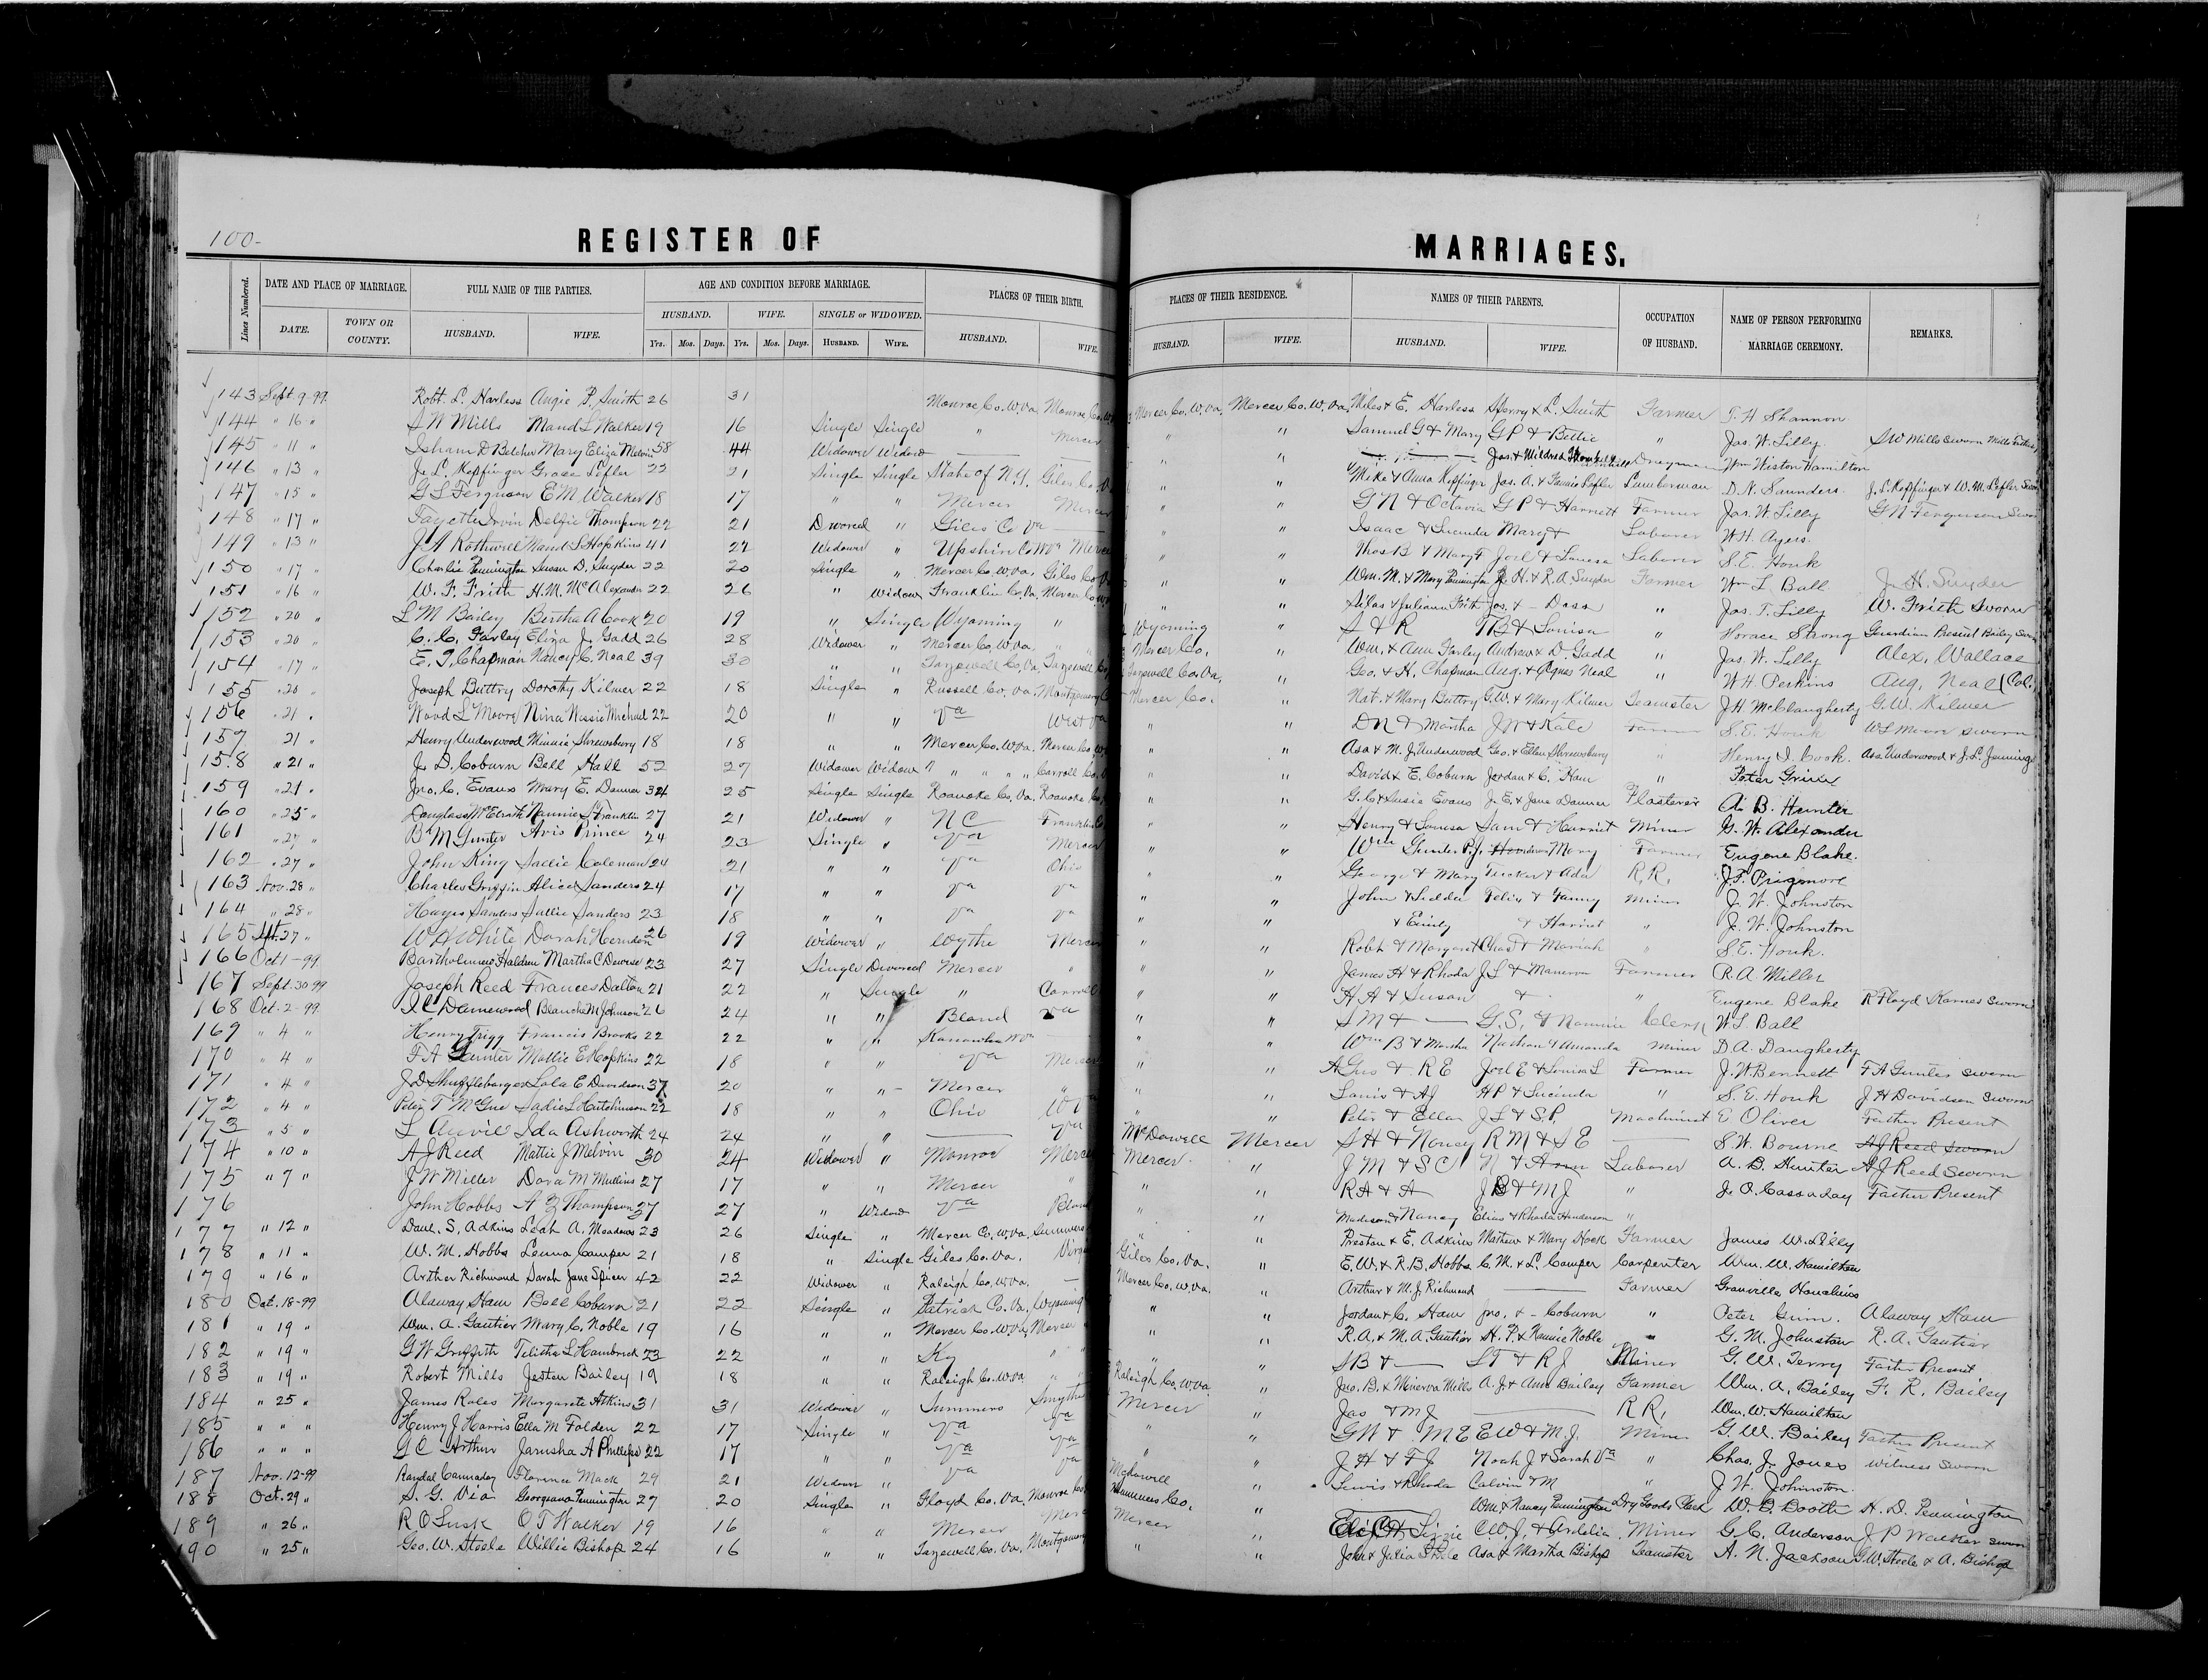 100-
REGISTER OF MARRIAGES.
Lines Numbered. DATE AND PLACE OF MARRIAGE. FULL NAME OF THE PARTIES. AGE AND CONDITION BEFORE MARRIAGE. PLACES OF THEIR BIRTH. PLACES OF THEIR RESIDENCE. NAMES OF THEIR PARENTS. OCCUPATION OF HUSBAND. NAME OF PERSON PERFORMING MARRIAGE CEREMONY. REMARKS.
DATE. TOWN OR COUNTY. HUSBAND. WIFE. HUSBAND. WIFE. SINGLE or WIDOWED. HUSBAND. WIFE. HUSBAND. WIFE. HUSBAND. WIFE.
Yrs. Mos. Days. Yrs. Mos. Days. HUSBAND. WIFE.
143 Sept. 9-99 Robt. L. Harless Angie P. Smith 26 31 Monroe Co. W.Va. Monroe Co. Mercer Co. W.Va. Mercer Co. W.Va. Miles & E. Harless & L. Smith Farmer T. H Shannon
144 " 16 " S W Mills Maud L Walker 19 16 Single Single " Mercer " " Samuel G & Mary G P & Bettie " Jas. W. Lilly S W Mills Sworn
145 " 11 " Isham D Belcher Mary Eliza Melvin 58 44 Widower Widow " " Jas. & Mildred Drayman Wm Wiston Hamilton
146 " 13 " J. L. Kepfinger Grace Lefler 22 21 Single Single State of N.Y. Giles Co. " " Mike & Anna Kepfinger Jas. A. & Fannie Lefler Lumberman D. N. Saunders J. L. Kepfinger & W. M. Lefler
147 " 15 " G L Ferguson E M Walker 18 17 " " Mercer Mercer " " G N & Octavia G P & Harriett Farmer Jas. W. Lilly G N Ferguson
148 " 17 " Fayette Irvin Delfie Thompson 22 21 Divorced " Giles Co Va " " Isaac & Lucinda Margt Laborer W. H. Ayers
149 " 13 " J A Rothwell Maud S Hopkins 41 22 Widower " Upshin Co W Va Mercer " " Thos B & Margt Joel & Louisa Laborer S. E. Houk
150 " 17 " Charlie Pennington Susan D. Snyder 22 20 Single " Mercer Co. W.Va. Giles Co. " " Wm. M. & Mary Pennington J. H. & R. A. Snyder Farmer Wm L Ball J. H. Snyder
151 " 16 " W. F. Frith H. M. McAlexander 22 26 " Widow Franklin Co. Va. Mercer Co. " " Silas & Juliann Frith Jos. & - Doss " Jas. T. Lilly W. Frith Sworn
152 " 20 " L M Bailey Bertha A Cook 20 19 " Single Wyoming " Wyoming " S & R T B & Louisa " Horace Strong Guardian Present Bailey
153 " 20 " C. C. Farley Eliza J. Gadd 26 28 Widower " Mercer Co. W.Va. " Mercer Co. " Wm. & Ann Farley Andrew & D. Gadd " Jas. W. Lilly Alex. Wallace
154 " 17 " E. T. Chapman Nancy C. Neal 39 30 " " Tazewell Co. Va. Tazewell Co. Tazewell Co. Va. " Geo. & H. Chapman Aug. & Agnes Neal " W H Perkins Aug. Neal (Col.)
155 " 20 " Joseph Buttry Dorothy Kilmer 22 18 Single " Russell Co. Va. Montgomery C Mercer Co. " Nat. & Mary Buttry G.W. & Mary Kilmer Teamster J H McClaugherty G. W. Kilmer
156 " 21 " Wood L Moore Nina Nissie Michael 22 20 " " Va West Va " " D N & Martha J W & Kate Farmer S. E. Houk W S Moore sworn
157 21 " Henry Underwood Minnie Shrewsbury 18 18 " " Mercer Co. W.Va. Mercer Co. " " Asa & M. J. Underwood Geo. & Ellen Shrewsbury " Henry D. Cook. Asa Underwood & J. L. Jennings
158 " 21 " J. D. Coburn Bell Hall 52 27 Widower Widow " " " Carroll Co. " " David & E. Coburn Jordan & C. Ham " Peter Grim
159 " 21 " Jno. C. Evans Mary E. Danner 32 25 Single Single Roanoke Co. Va. Roanoke " " G. C & Susie Evans J. E. & Jane Danner Plasterer A. B. Hunter
160 " 25 " Douglass McElrath Nannie S Franklin 27 21 Widower " N C Franklin " " Henry & Louisa Sam & Harriet Miner G. W. Alexander
161 " 27 " B M Gunter Avis Prince 24 23 Single " Va Mercer " " Wm Gunter P. J. Mary Farmer Eugene Blake.
162 " 27 " John King Sallie Coleman 24 21 " " Va Ohio " " George & Mary Tucker & Ada R, R, J. F. Prigmore
163 Nov. 28 " Charles Griffin Alice Sanders 24 17 " " Va Va " " John & Felix & Fanny Miner J. W. Johnston
164 " 28 " Hayes Sanders Sallie Sanders 23 18 " " Va Va " " & Emily & Harriet " J. W. Johnston
165 Spt. 27 " W H White Dorah Herndon 26 19 Widower " Wythe Mercer " " Robt & Margaret Chas & Mariah " S. E. Houk.
166 Oct 1-99 Bartholmew Haldren Martha C Dewese 23 27 Single Divorced Mercer " " " James H & Rhoda J L & Farmer R. A. Miller
167 Sept. 30 99 Joseph Reed Frances Dalton 21 22 " Single " Carroll " " H A & Susan & " Eugene Blake R Floyd Karnes sworn
168 Oct. 2-99 Blanche M Johnson 26 24 " " Bland Va " " S M & G. S. & Nannie Clerk W L Ball
169 " 4 " Henry Trigg Francis Brooks 22 22 " " Kanawha W Va " " Wm B & Martha Nathan & Amanda Miner D. A. Daugherty
170 " 4 " F A Gunter Mollie E Hopkins 22 18 " " Va Mercer " " A Gus & R E Joel E & Louisa L Farmer J. W Bennett F A Gunter sworn
171 " 4 " J D Shufflebarger Lola E Davidson 37 20 " " Mercer " " " Louis & A J H P & Lucinda " S. E. Houk J H Davidson sworn
172 " 4 " Peter T McGue Sadie L Hutchinson 22 18 " " Ohio W V " " Peter & Ellen J L & S. P. Machinist E Oliver Father Present
173 " 5 " L Auvil Ida Ashworth 24 24 " " Va McDowell Mercer S H & Nancy R M & S E S. W. Bourne A J Reed Sworn
174 " 10 " A J Reed Mattie J Melvin 30 24 Widower " Monroe Mercer Mercer " J M & S C N & Ann Laborer A. B. Hunter A J Reed Sworn
175 " 7 " J W Miller Dora M Mullins 27 17 " " Mercer " " " R A & A J B & M J " J. O. Cassaday Father Present
176 John Hobbs A Z Thompson 37 27 " Widow Va Bland " " Madison & Nancy Elias & Rhoda Henderson "
177 " 12 " Danl. S. Adkins Leah A. Meadows 23 26 Single " Mercer Co. W.Va. Summers " " Preston & E. Adkins Mathew & Mary Hock Farmer James W. Lilly
178 " 11 " W. M. Hobbs Lenna Camper 21 18 " Single Giles Co. Va. Giles Co. Va. " E. W. & R. B. Hobbs C. M. & L. Camper Carpenter Wm. W. Hamilton
179 " 16 " Arther Richmond Sarah Jane Spicer 42 22 Widower " Raleigh Co. W.Va. - Mercer Co. W.Va. " Arthur & M. J. Richmond Farmer Granville Houchins
180 Oct. 18-99 Alaway Ham Bell Coburn 21 22 Single " Patrick Co. Va. Wyoming " " Jordan & C. Ham Jno. & - Coburn " Peter Grim. Alaway Ham
181 " 19 " Wm. A. Gautier Mary C. Noble 19 16 " " Mercer Co. W.Va. Mercer " " R. A. & M. A. Gautier H. P. & Nannie Noble " G. M. Johnston R. A. Gautier
182 " 19 " G W Griffith Telitha L Hambrick 23 22 " " Ky " " " S B & L T & R J Miner G. W. Terry Father Present
183 " 19 " Robert Mills Jesten Bailey 19 18 " " Raleigh Co. W.Va " Raleigh Co. W.Va. " Jno. B. & Minerva Mills A. J. & Ann Bailey Farmer Wm. A. Bailey F. R. Bailey
184 " 25 " James Roles Margarete Atkins 31 31 Widower " Summers Smythe Mercer " Jas & M J R R, Wm. W. Hamilton
185 " " " Henry J Harris Ella M Folden 22 17 Single " Va Va " " G W & M E E W & M. J. Miner G. W. Bailey Father Present
186 " " " G C Arthur Jarusha A Phillips 22 17 " " Va Va " " J H & F J Noah J & Sarah Va " Chas. J. Jones Witness Sworn
187 Nov. 12-99 Randal Cannaday Florence Mack 29 21 Widower " Va Va McDowell " Lewis & Rhoda Calvin & M " J. W. Johnston.
188 Oct. 29 " S. G. Via Georgeana Pennington 27 20 Single " Floyd Co. Va. Monroe Co. Summers Co. " Wm. & Nancy Pennington Dry Goods Clerk W. B. Booth H. D. Pennington
189 " 26 " R O Lusk O T Walker 19 16 " " Mercer Mercer Mercer " Lizzie C W. J. & Ardelia Miner G. C. Anderson J P Walker sworn
190 " 25 " Geo. W. Steele Willie Bishop 24 16 " " Tazewell Co. Va. Montgomery " " John & Julia Steele Asa & Martha Bishop Teamster A. N. Jackson G. W. Steele & A. Bishop